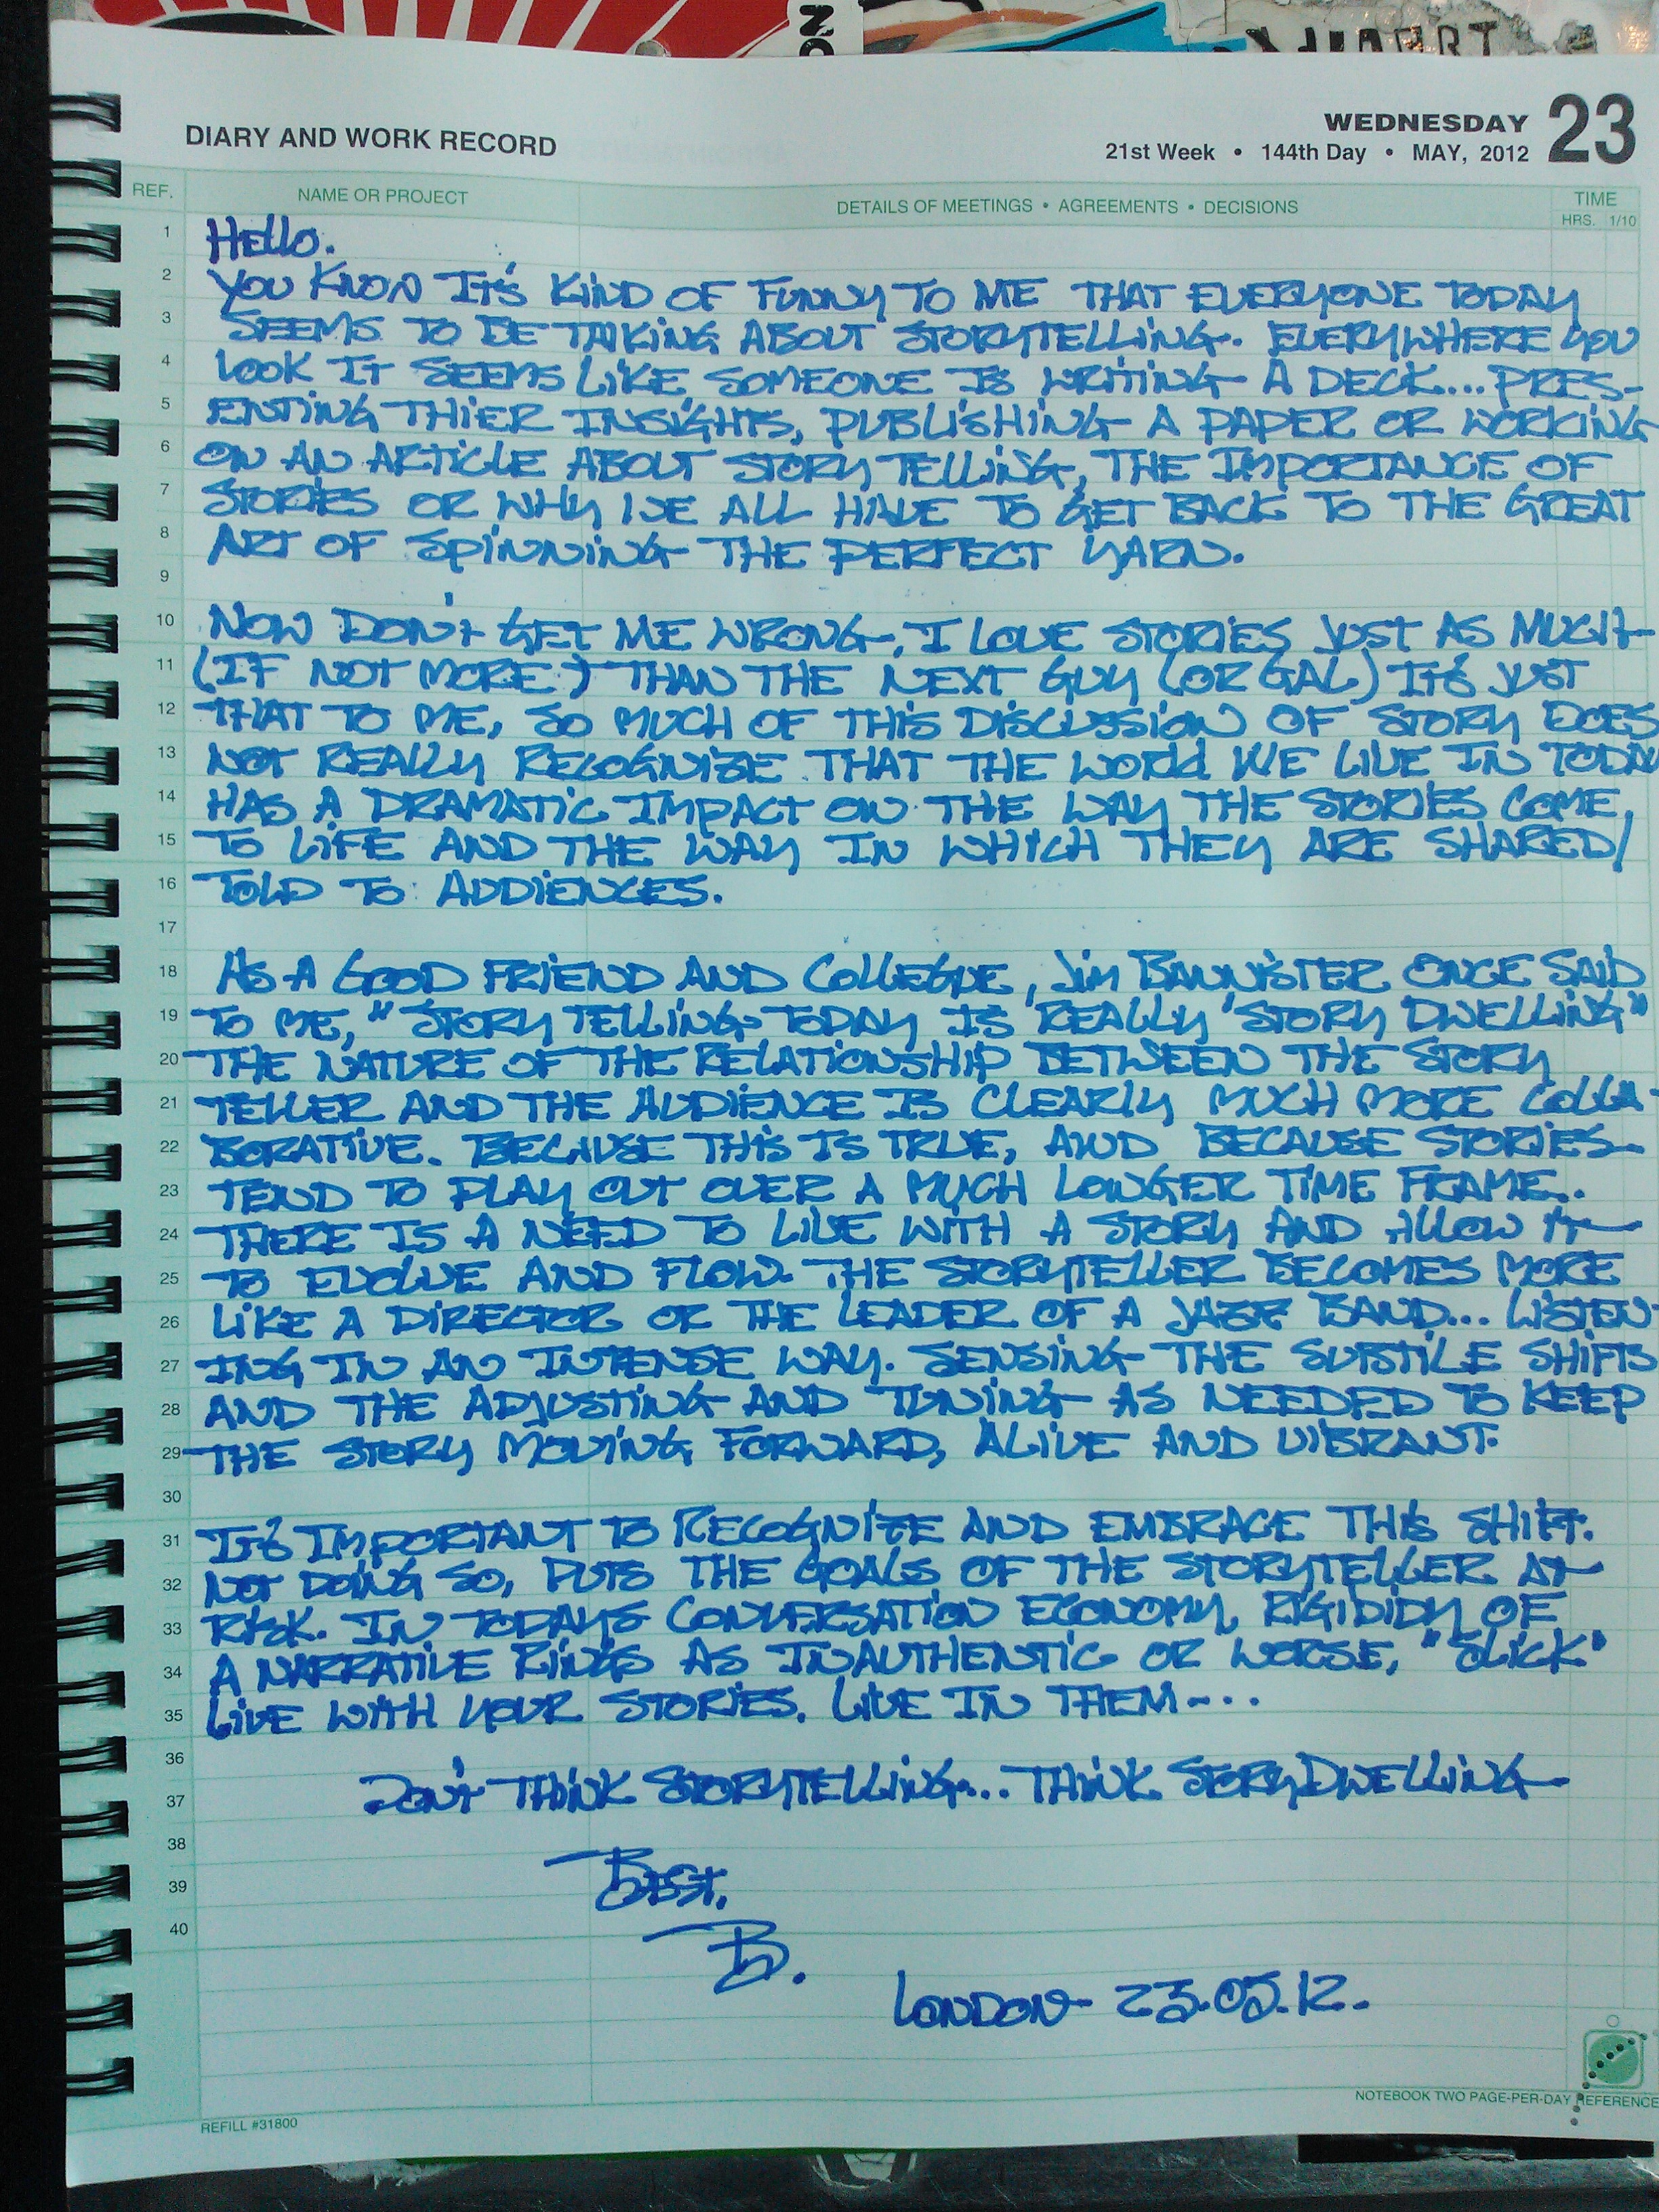 ON
DIARY AND WORK RECORD
WEDNESDAY 23
21st Week • 144th Day • MAY, 2012
REF. NAME OR PROJECT DETAILS OF MEETINGS • AGREEMENTS • DECISIONS TIME
HRS. 1/10
1 HELLO.
2 YOU KNOW IT'S KIND OF FUNNY TO ME THAT EVERYONE TODAY
3 SEEMS TO BE TALKING ABOUT STORYTELLING. EVERYWHERE YOU
4 LOOK IT SEEMS LIKE SOMEONE IS WRITING A DECK... PRES-
5 ENTING THIER INSIGHTS, PUBLISHING A PAPER OR WORKING
6 ON AN ARTICLE ABOUT STORY TELLING, THE IMPORTANCE OF
7 STORIES OR WHY WE ALL HAVE TO GET BACK TO THE GREAT
8 ART OF SPINNING THE PERFECT YARN.
9
10 NOW DON'T GET ME WRONG, I LOVE STORIES JUST AS MUCH
11 (IF NOT MORE) THAN THE NEXT GUY (OR GAL) IT'S JUST
12 THAT TO ME, SO MUCH OF THIS DISCUSSION OF STORY DOES
13 NOT REALLY RECOGNIZE THAT THE WORLD WE LIVE IN TODAY
14 HAS A DRAMATIC IMPACT ON THE WAY THE STORIES COME
15 TO LIFE AND THE WAY IN WHICH THEY ARE SHARED/
16 TOLD TO AUDIENCES.
17
18 AS A GOOD FRIEND AND COLLEGUE, JIM BANNISTER ONCE SAID
19 TO ME, "STORY TELLING TODAY IS REALLY 'STORY DWELLING"
20 THE NATURE OF THE RELATIONSHIP BETWEEN THE STORY
21 TELLER AND THE AUDIENCE IS CLEARLY MUCH MORE COLLA-
22 BORATIVE. BECAUSE THIS IS TRUE, AND BECAUSE STORIES
23 TEND TO PLAY OUT OVER A MUCH LONGER TIME FRAME..
24 THERE IS A NEED TO LIVE WITH A STORY AND ALLOW IT
25 TO EVOLVE AND FLOW. THE STORYTELLER BECOMES MORE
26 LIKE A DIRECTOR OR THE LEADER OF A JAZZ BAND... LISTEN-
27 ING IN AN INTENSE WAY. SENSING THE SUBTILE SHIFTS
28 AND THE ADJUSTING AND TUNING AS NEEDED TO KEEP
29 THE STORY MOVING FORWARD, ALIVE AND VIBRANT.
30
31 IT'S IMPORTANT TO RECOGNIZE AND EMBRACE THIS SHIFT.
32 NOT DOING SO, PUTS THE GOALS OF THE STORYTELLER AT
33 RISK. IN TODAYS CONVERSATION ECONOMY, RIGIDIDY OF
34 A NARRATIVE RINGS AS INAUTHENTIC OR WORSE, "SLICK"
35 LIVE WITH YOUR STORIES. LIVE IN THEM....
36
37 DON'T THINK STORYTELLING... THINK STORYDWELLING
38
39 BEST,
40
B.
LONDON 23.05.12.
NOTEBOOK TWO PAGE-PER-DAY REFERENCE
REFILL #31800